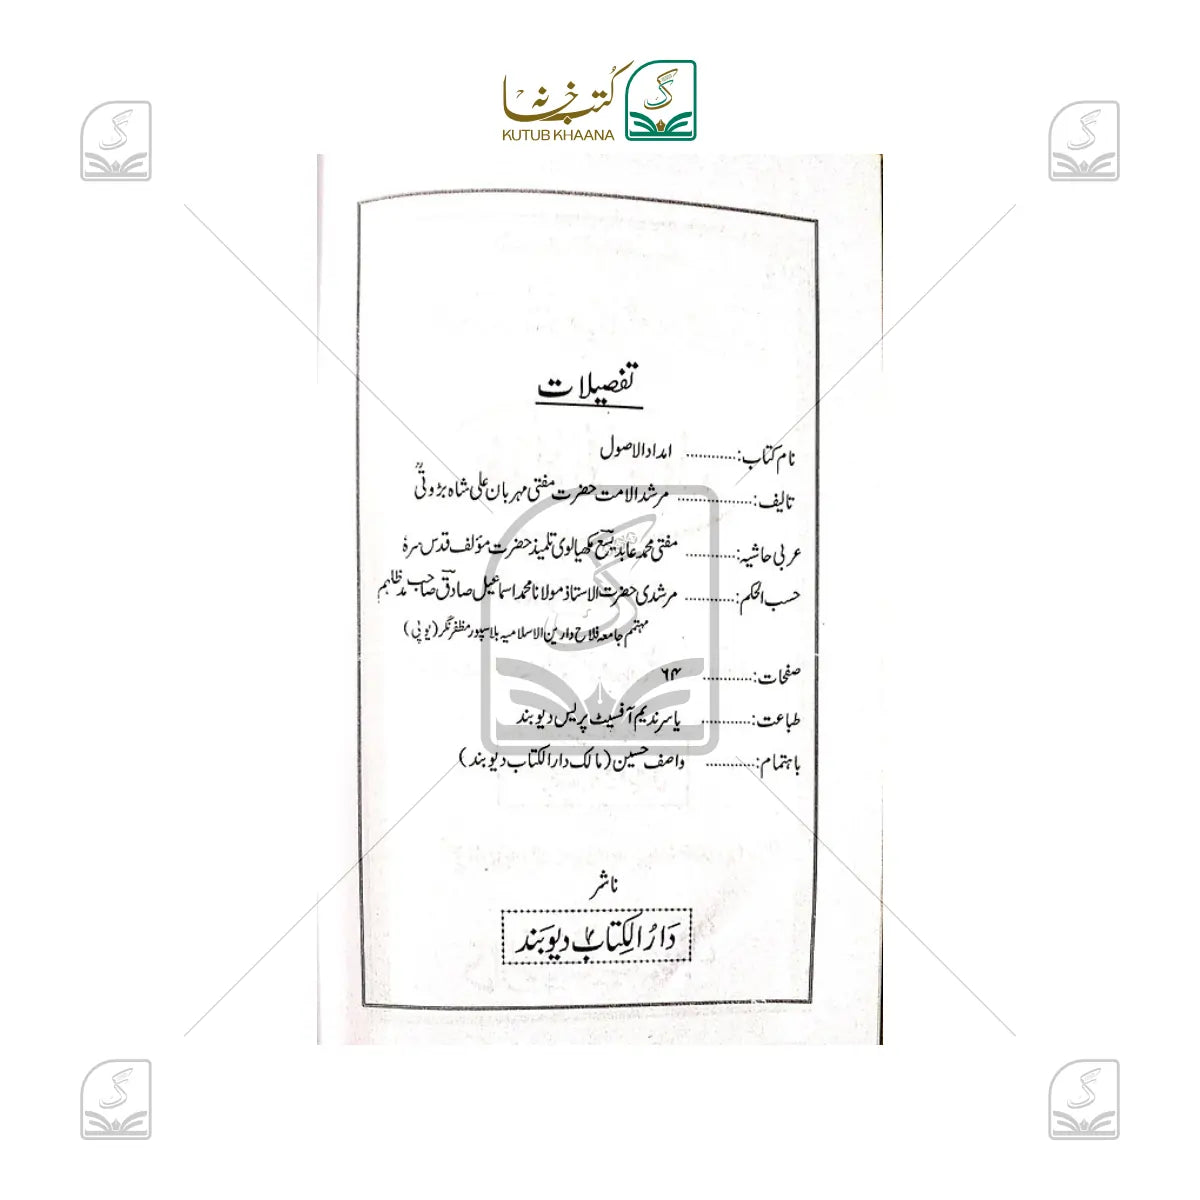 کتب خانہ
KUTUB KHAANA
تفصیلات
نام کتاب:............ امداد الاصول
تالیف:................... مرشد الامت حضرت مفتی مہربان علی شاہ بڑوتیؒ
عربی حاشیہ:............ مفتی محمد عابد یسع مکھیالوی تلمیذ حضرت مؤلف قدس سرہٗ
حسب الحکم:............ مرشدی حضرت الاستاذ مولانا محمد اسماعیل صادق صاحب مدظلہم
مہتمم جامعہ فلاح دارین الاسلامیہ بلاسپور مظفرنگر (یوپی)
صفحات:............ ۶۴
طباعت:............ یاسر ندیم آفسیٹ پریس دیوبند
باہتمام:............ واصف حسین (مالک دارالکتاب دیوبند)
ناشر
دَارُ الکِتابْ دیوبَند